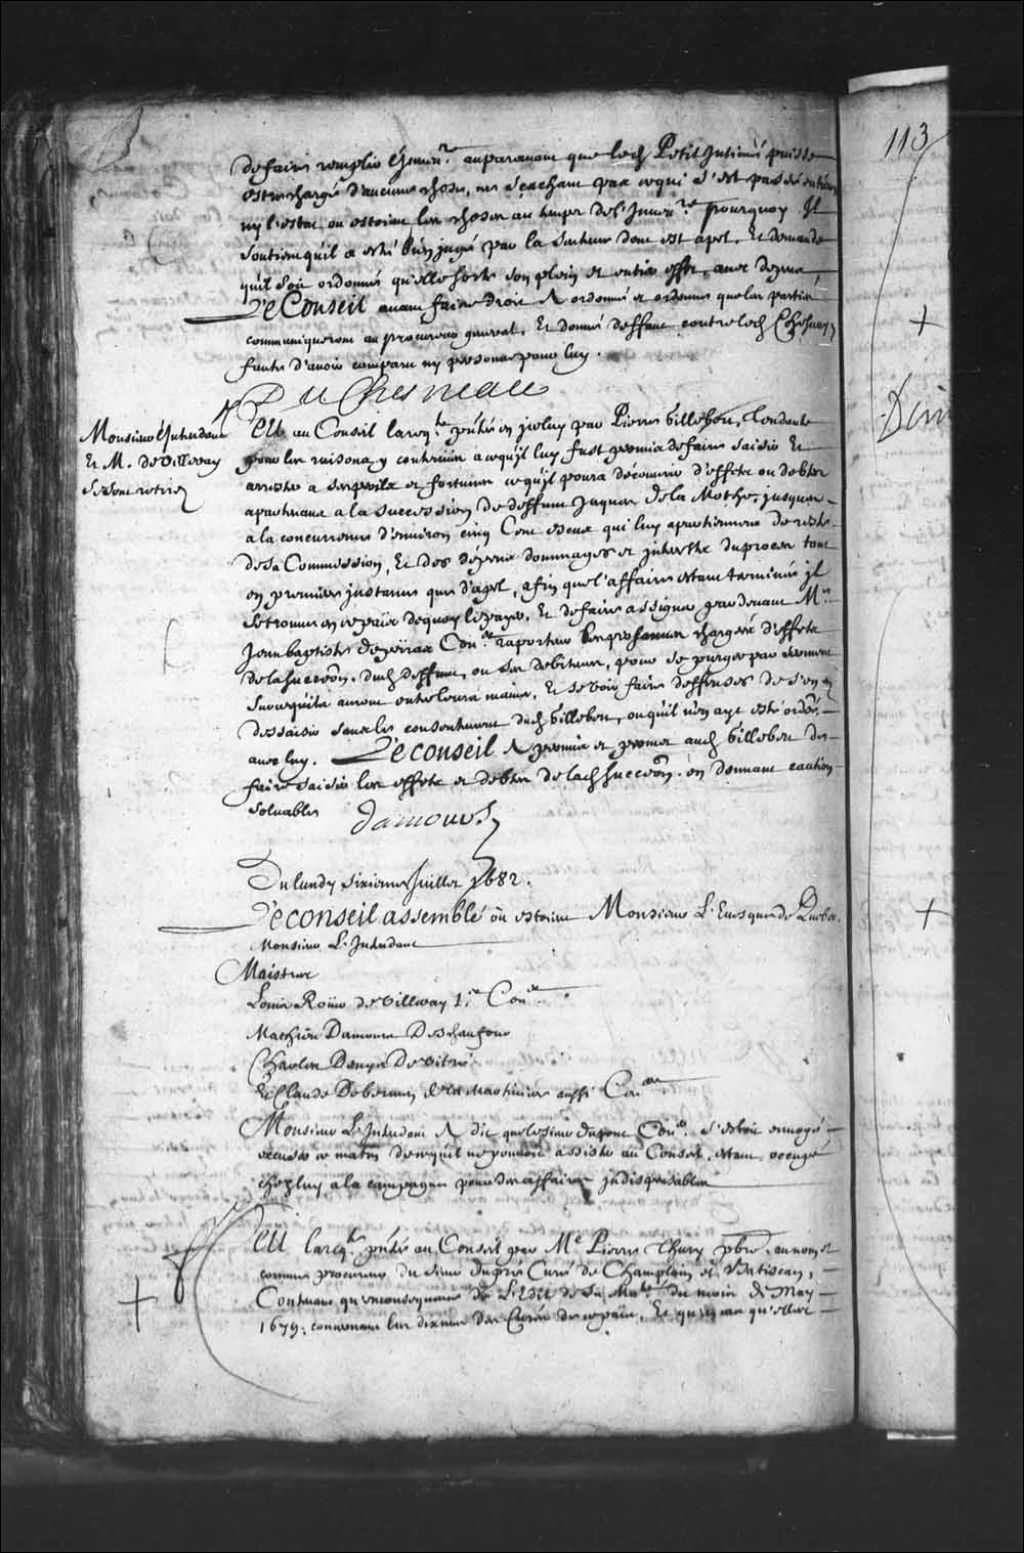 113
de faire remplir l'Jnven.re auparauant que led Petit Jntimé puisse
estre chargé d'aucunes choses, ne sçachant pas ce qui s'est passé
ny l'estat ou estoient les choses au temps de l'Jnven.re pourquoy Jl
soutient qu'il a esté bien jugé par la sentence dont est apel. Et demande
qu'il soit ordonné qu'elle sorte son plein et entier effet, auec depens,
Le Conseil auant faire droit A ordonné et ordonne que les parties
communiqueront au procureur general. Et donné deffaut contre led Chesnay
faute d'auoir comparu ny personne pour luy.
DuChesneau
Monsieur l'Intendant
Et M. de Villeray
se sont retirez
Veu au Conseil la req.te p̃ntée en jceluy par Pierre Gillebert, Tendante
pour les raisons y contenües a ce qu'jl luy fust permis de faire saisir Et
arrester a ses perils et fortunes ce qu'jl poura découurir d'effets ou debtes
apartenans a la succession de deffunt Jaques de la Mothe, jusques
a la concurrence d'enuiron cinq Cent escus qui luy apartiennent de reste
de sa Commission, Et des dépens dommages et jnterests du procez tant
en premiere jnstance que d'apel, afin que l'affaire estant terminée jl
se trouue en ce païs dequoy le payer. Et de faire assigner pardeuant M.re
Jean baptiste Depeiras Con.er raporteur les personnes chargées d'effets
de la succeõn. dud deffunt, ou ses debiteurs, pour se purger par serment
sur ce qu'ils auront entre leurs mains, Et se voir faire deffenses de s'en
dessaisir sans le consentement dud Gillebert, ou qu'il n'en ayt esté ordõné
auec luy. Le Conseil A permis et permet aud Gillebert de
faire saisir les effets et debtes de lad succeõn. en donnant caution
soluable
Damours
Du lundy sixieme Juillet 1682.
Le Conseil assemblé où estoient Monsieur L'Euesque de Quebec.
Monsieur L'Intendant
Maistres
Louis Roüer de Villeray 1.er Con.er
Mathieu Damours Deschaufour
Charles Denys De Vitré
Et Claude De bermen de la Martiniere aussi Con.ers
Monsieur L'Intendant A dit que le sieur dupont Con.er s'estoit enuoyé
excuser ce matin de ce qu'il ne pouuoit assister au Conseil, estant occupé
chez luy a la campagne pour des affaires jndispensables
Veu la req.te p̃ntée au Conseil par M.e Pierre Thury p̃bre, au nom et
comme procureur du sieur dupré Curé de Champlain et Batiscan,
Contenant qu'en consequence de L'Edit de Sa Ma.té du mois de May
1679. concernant les dixmes des Curés de ce païs, Et quoyque qu'elles